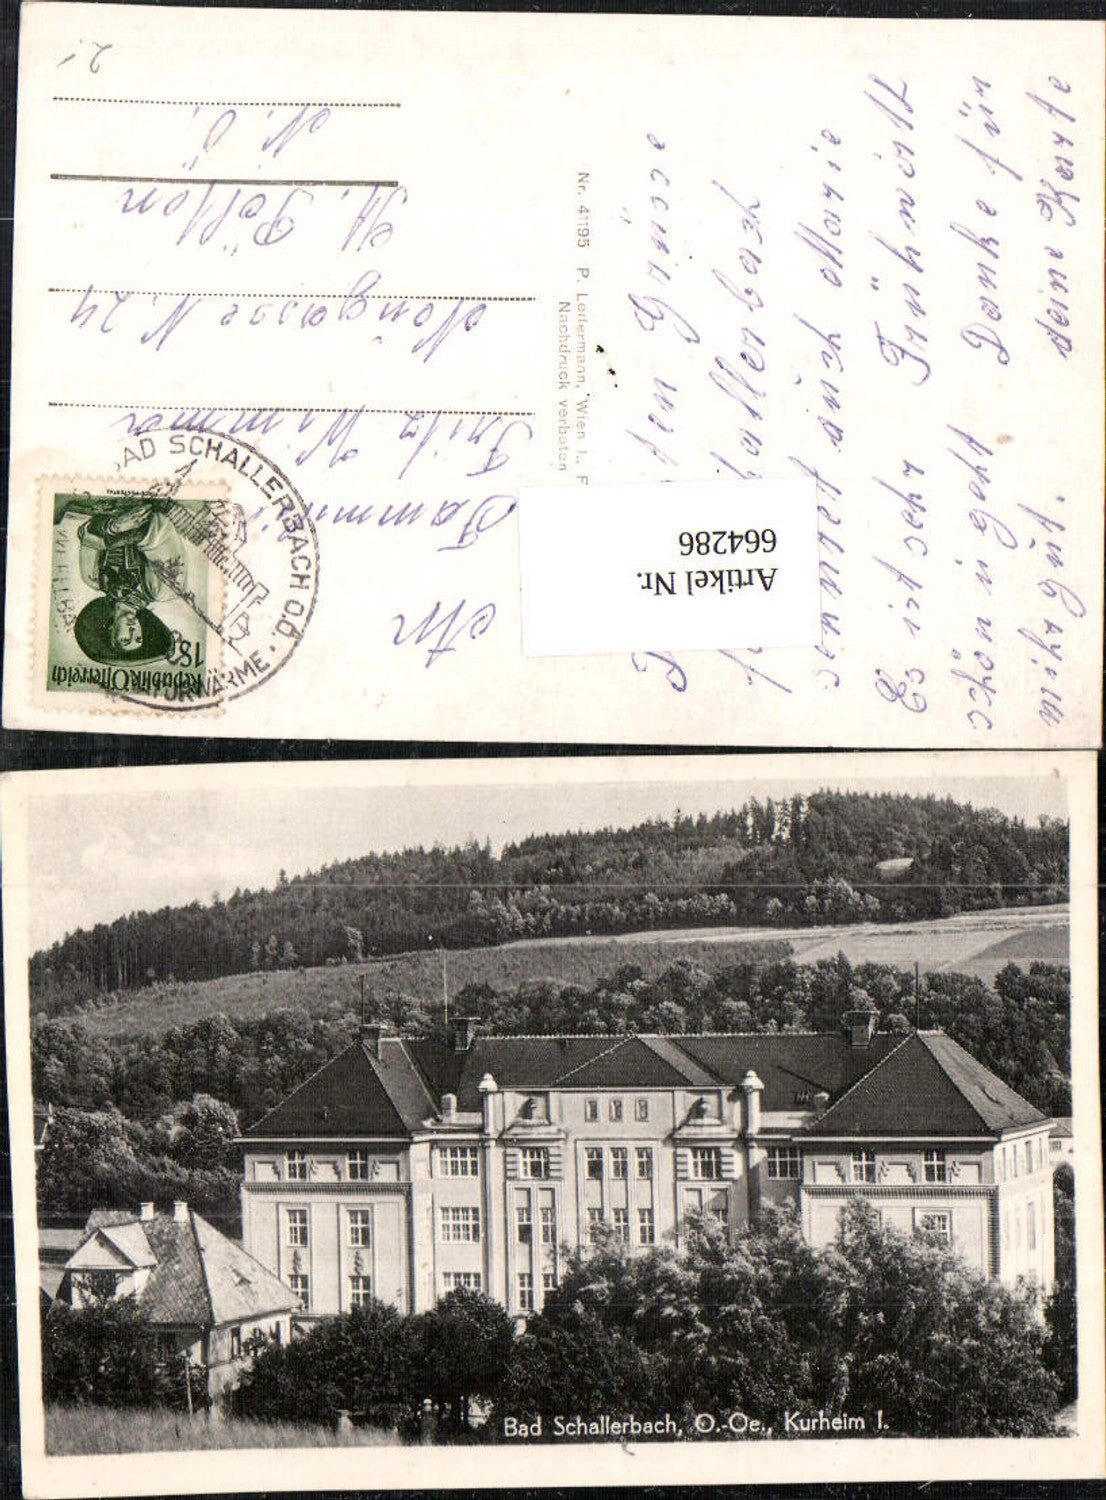 Es ist sehr
schön u. geht
mihr gut.
Danke für
deine Karte
sendet auch Marie
Frühwirth
An
Fammilie
Fritz Wimmer
Neugasse N. 24
St. Pölten
N. Ö.
Nr. 41195 P. Ledermann, Wien I., F
Nachdruck verboten
Artikel Nr.
664286
BAD SCHALLERBACH O.Ö.
Republik Österreich
1 S
Bad Schallerbach, O.-Oe., Kurheim I.